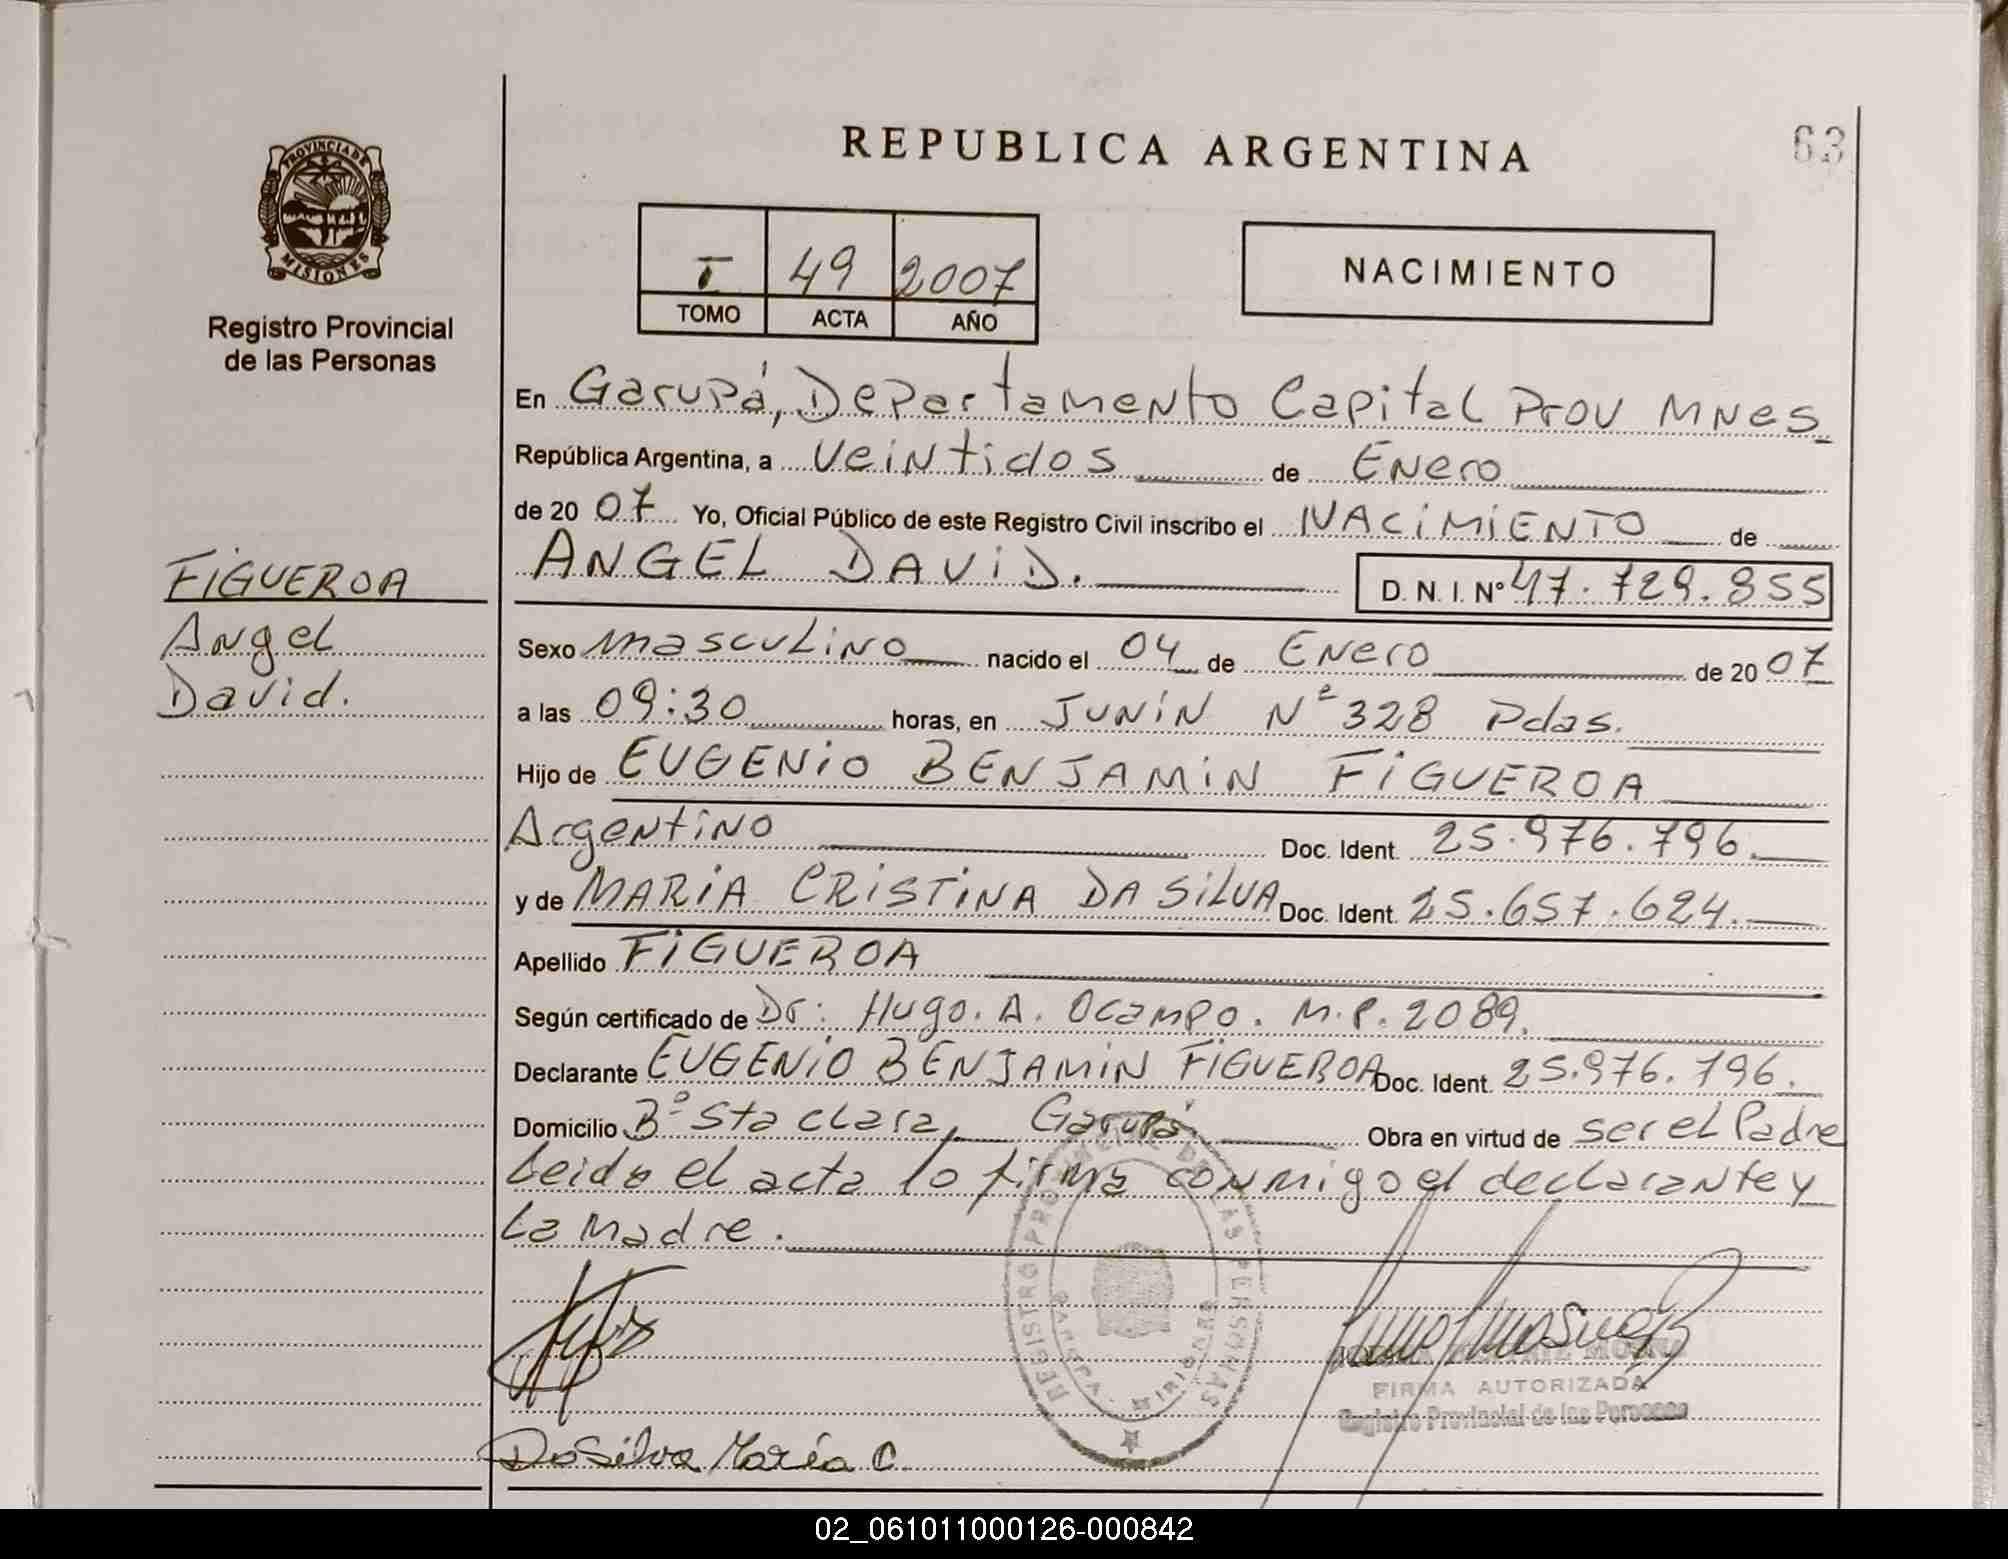 PROVINCIA DE
MISIONES
Registro Provincial
de las Personas
FIGUEROA
Angel
David.
REPUBLICA ARGENTINA
63
I 49 2007
TOMO ACTA AÑO
NACIMIENTO
En Garupá, Departamento Capital Prov Mnes
República Argentina, a veintidos de Enero
de 2007 Yo, Oficial Público de este Registro Civil inscribo el NACIMIENTO de
ANGEL DAVID. D.N.I. Nº 47.729.855
Sexo masculino nacido el 04 de Enero de 2007
a las 09:30 horas, en JUNIN Nº 328 Pdas.
Hijo de EUGENIO BENJAMIN FIGUEROA
Argentino Doc. Ident. 25.976.796.
y de MARIA CRISTINA DA SILVA Doc. Ident. 25.657.624.
Apellido FIGUEROA
Según certificado de Dr: Hugo. A. Ocampo. M.P. 2089.
Declarante EUGENIO BENJAMIN FIGUEROA Doc. Ident. 25.976.796.
Domicilio Bº Sta clara, Garupá Obra en virtud de ser el Padre
Leida el acta lo firma conmigo el declarante y
La Madre.
REGISTRO PROVINCIAL DE LAS PERSONAS
GARUPA - MISIONES
FIRMA AUTORIZADA
Registro Provincial de las Personas
DaSilva María C
02_061011000126-000842